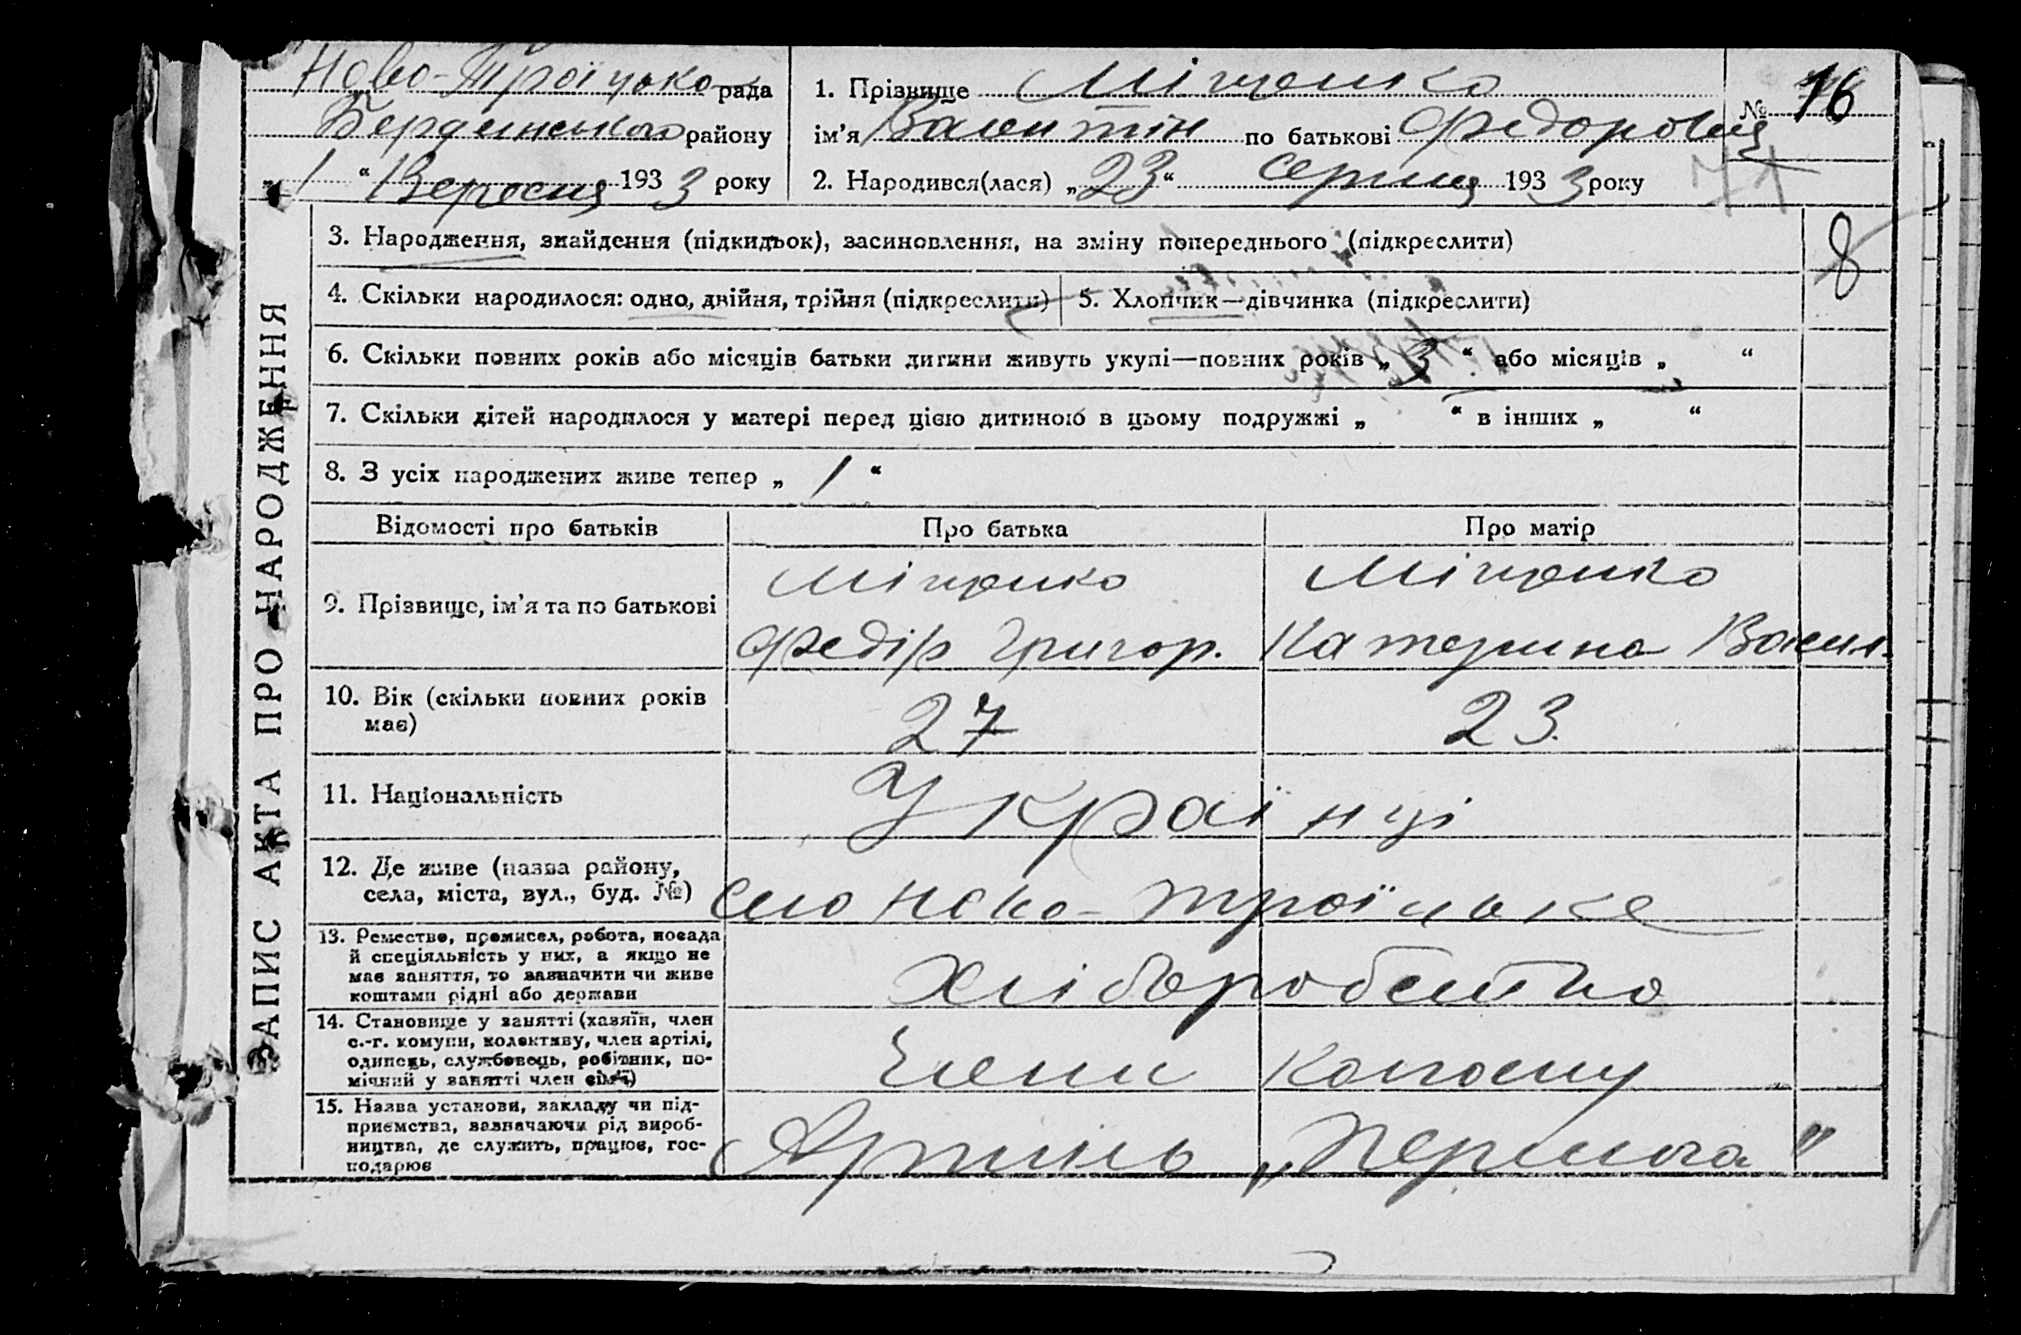 Ново-Троїцько рада
Бердянського району
„ 1 “ Вересня 1933 року
1. Прізвище Міщенко
ім’я Валентін по батькові Федорович
2. Народився(лася) „23“ серпня 1933 року
№ 16
71
ЗАПИС АКТА ПРО НАРОДЖЕННЯ
3. Народження, знайдення (підкидьок), засиновлення, на зміну попереднього (підкреслити)
8
4. Скільки народилося: одно, двійня, трійня (підкреслити)
5. Хлопчик—дівчинка (підкреслити)
6. Скільки повних років або місяців батьки дитини живуть укупі—повних років „ 3 “ або місяців „ “
7. Скільки дітей народилося у матері перед цією дитиною в цьому подружжі „ “ в інших „ “
8. З усіх народжених живе тепер „ 1 “
Відомості про батьків
Про батька
Про матір
9. Прізвище, ім’я та по батькові
Міщенко
Федір Григор.
Міщенко
Катерина Васил.
10. Вік (скільки повних років
має)
27
23.
11. Національність
Українці
12. Де живе (назва району,
села, міста, вул., буд. №)
село Ново-Троїцьке
13. Ремество, промисел, робота, посада
й спеціяльність у них, а якщо не
має заняття, то зазначити чи живе
коштами рідні або держави
Хліборобство
14. Становище у занятті (хазяїн, член
с.-г. комуни, колективу, член артілі,
одинець, службовець, робітник, по-
мічний у занятті член сім’ї)
Члени колгоспу
15. Назва установи, закладу чи під-
приємства, зазначаючи рід вироб-
ництва, де служить, працює, гос-
подарює
Артиль „Перемога”